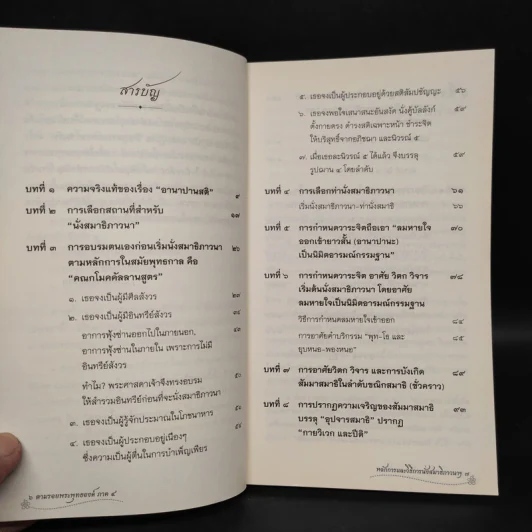 สารบัญ
บทที่ ๑ ความจริงแท้ของเรื่อง "อานาปานสติ" ๙
บทที่ ๒ การเลือกสถานที่สำหรับ ๑๗
"นั่งสมาธิภาวนา"
บทที่ ๓ การอบรมตนเองก่อนเริ่มนั่งสมาธิภาวนา
ตามหลักการในสมัยพุทธกาล คือ
"คณกโมคคัลลานสูตร"
๑. เธอจงเป็นผู้มีศีลสังวร
๒. เธอจงเป็นผู้มีอินทรีย์สังวร
อาการฟุ้งซ่านออกไปในภายนอก,
อาการฟุ้งซ่านในภายใน เพราะการไม่มี
อินทรีย์สังวร
ทำไม? พระศาสดาเจ้าจึงทรงอบรม
ให้สำรวมอินทรีย์ก่อนที่จะนั่งสมาธิภาวนา
๓. เธอจงเป็นผู้รู้จักประมาณในโภชนาหาร
๔. เธอจงเป็นผู้ประกอบอยู่เนืองๆ
ซึ่งความเป็นผู้ตื่นในการบำเพ็ญเพียร
๖ ตามรอยพระพุทธองค์ ภาค ๔
๕. เธอจงเป็นผู้ประกอบอยู่ด้วยสติสัมปชัญญะ ๕๖
๖. เธอจงพอใจเสนาสนะอันสงัด นั่งคู้บัลลังก์ ๕๙
ตั้งกายตรง ดำรงสติเฉพาะหน้า ชำระจิต
ให้บริสุทธิ์จากอภิชฌา และนิวรณ์ ๕
๗. เมื่อเธอละนิวรณ์ ๕ ได้แล้ว จึงบรรลุ ๕๙
รูปฌาน ๔ โดยลำดับ
บทที่ ๔ การเลือกท่านั่งสมาธิภาวนา ๖๑
เริ่มนั่งสมาธิภาวนา-ท่านั่งสมาธิ ๖๖
บทที่ ๕ การกำหนดวาระจิตถือเอา "ลมหายใจ ๗๐
ออกเข้ายาวสั้น (อานาปานะ)
เป็นนิมิตอารมณ์กรรมฐาน"
บทที่ ๖ การกำหนดวาระจิต อาศัย วิตก วิจาร ๗๘
เริ่มต้นนั่งสมาธิภาวนา โดยอาศัย
ลมหายใจเป็นนิมิตอารมณ์กรรมฐาน
วิธีการกำหนดลมหายใจเข้าออก ๘๔
การอาศัยคำบริกรรม "พุท-โธ และ ๘๕
ยุบหนอ-พองหนอ"
บทที่ ๗ การอาศัยวิตก วิจาร และการบังเกิด ๘๙
สัมมาสมาธิในลำดับขณิกสมาธิ (ชั่วคราว)
บทที่ ๘ การปรากฏความเจริญของสัมมาสมาธิ ๙๓
บรรลุ "อุปจารสมาธิ" ปรากฏ
"กายวิเวก และปีติ"